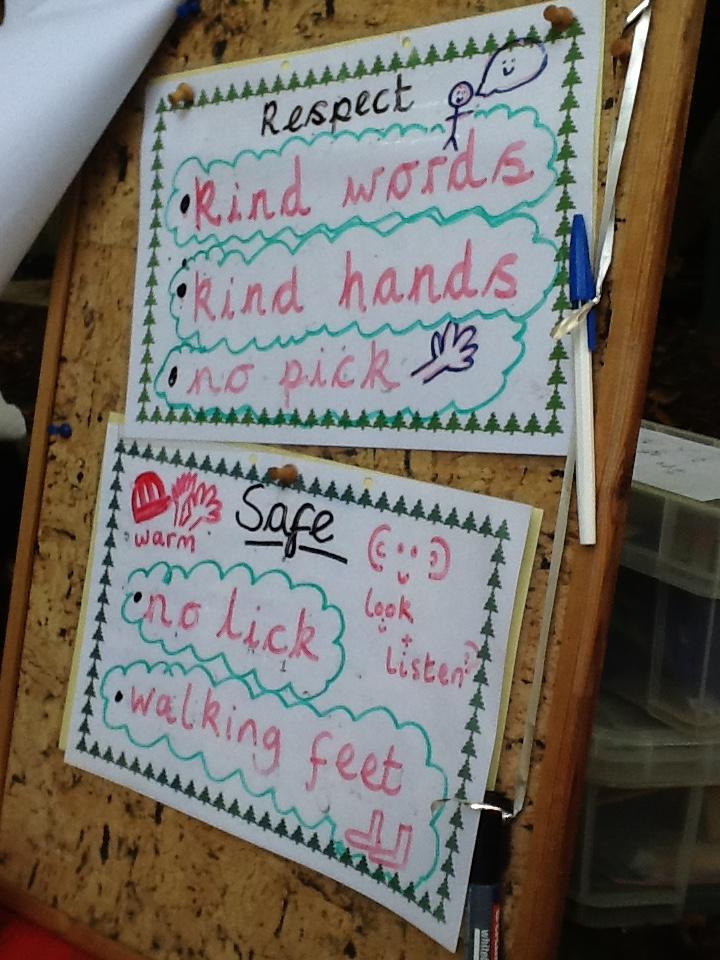 Respect
Kind words
kind hands
no pick
Safe
warm
look
+
Listen
no lick
walking feet